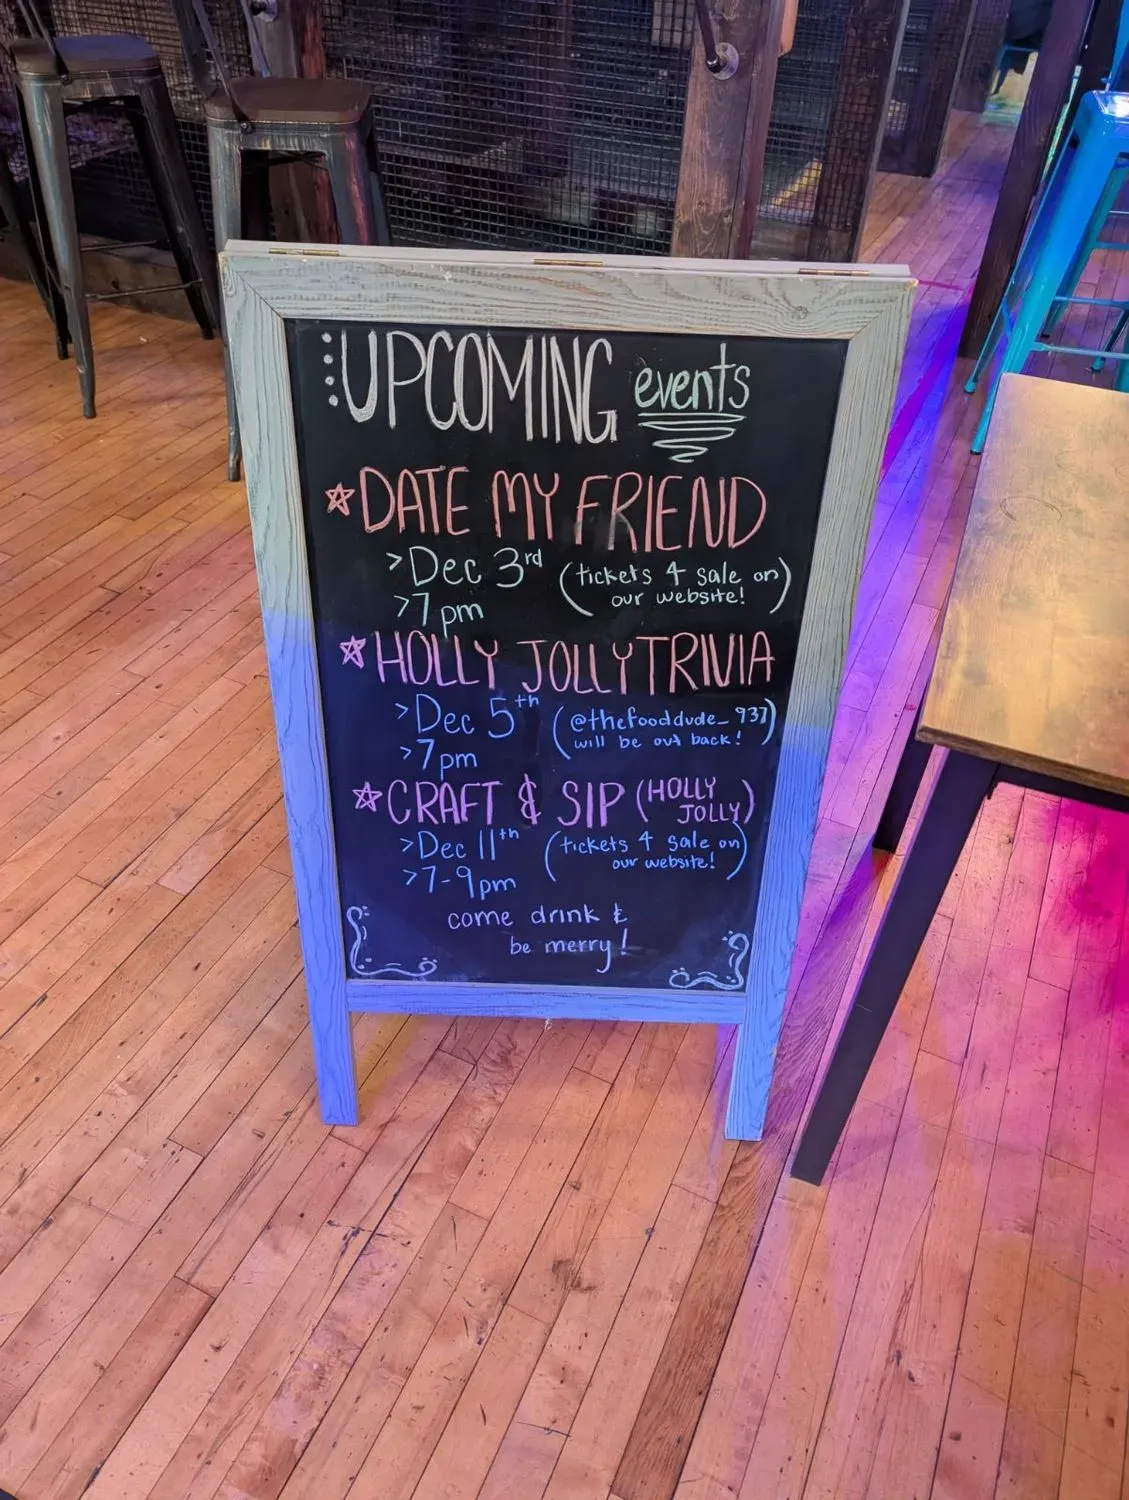 UPCOMING events
DATE MY FRIEND
>Dec 3rd (tickets 4 sale on
our website!)
>7pm
HOLLY JOLLY TRIVIA
>Dec 5th (@thefooddude_937
will be out back!)
>7pm
CRAFT & SIP (HOLLY
JOLLY)
>Dec 11th (tickets 4 sale on
our website!)
>7-9pm
come drink &
be merry!